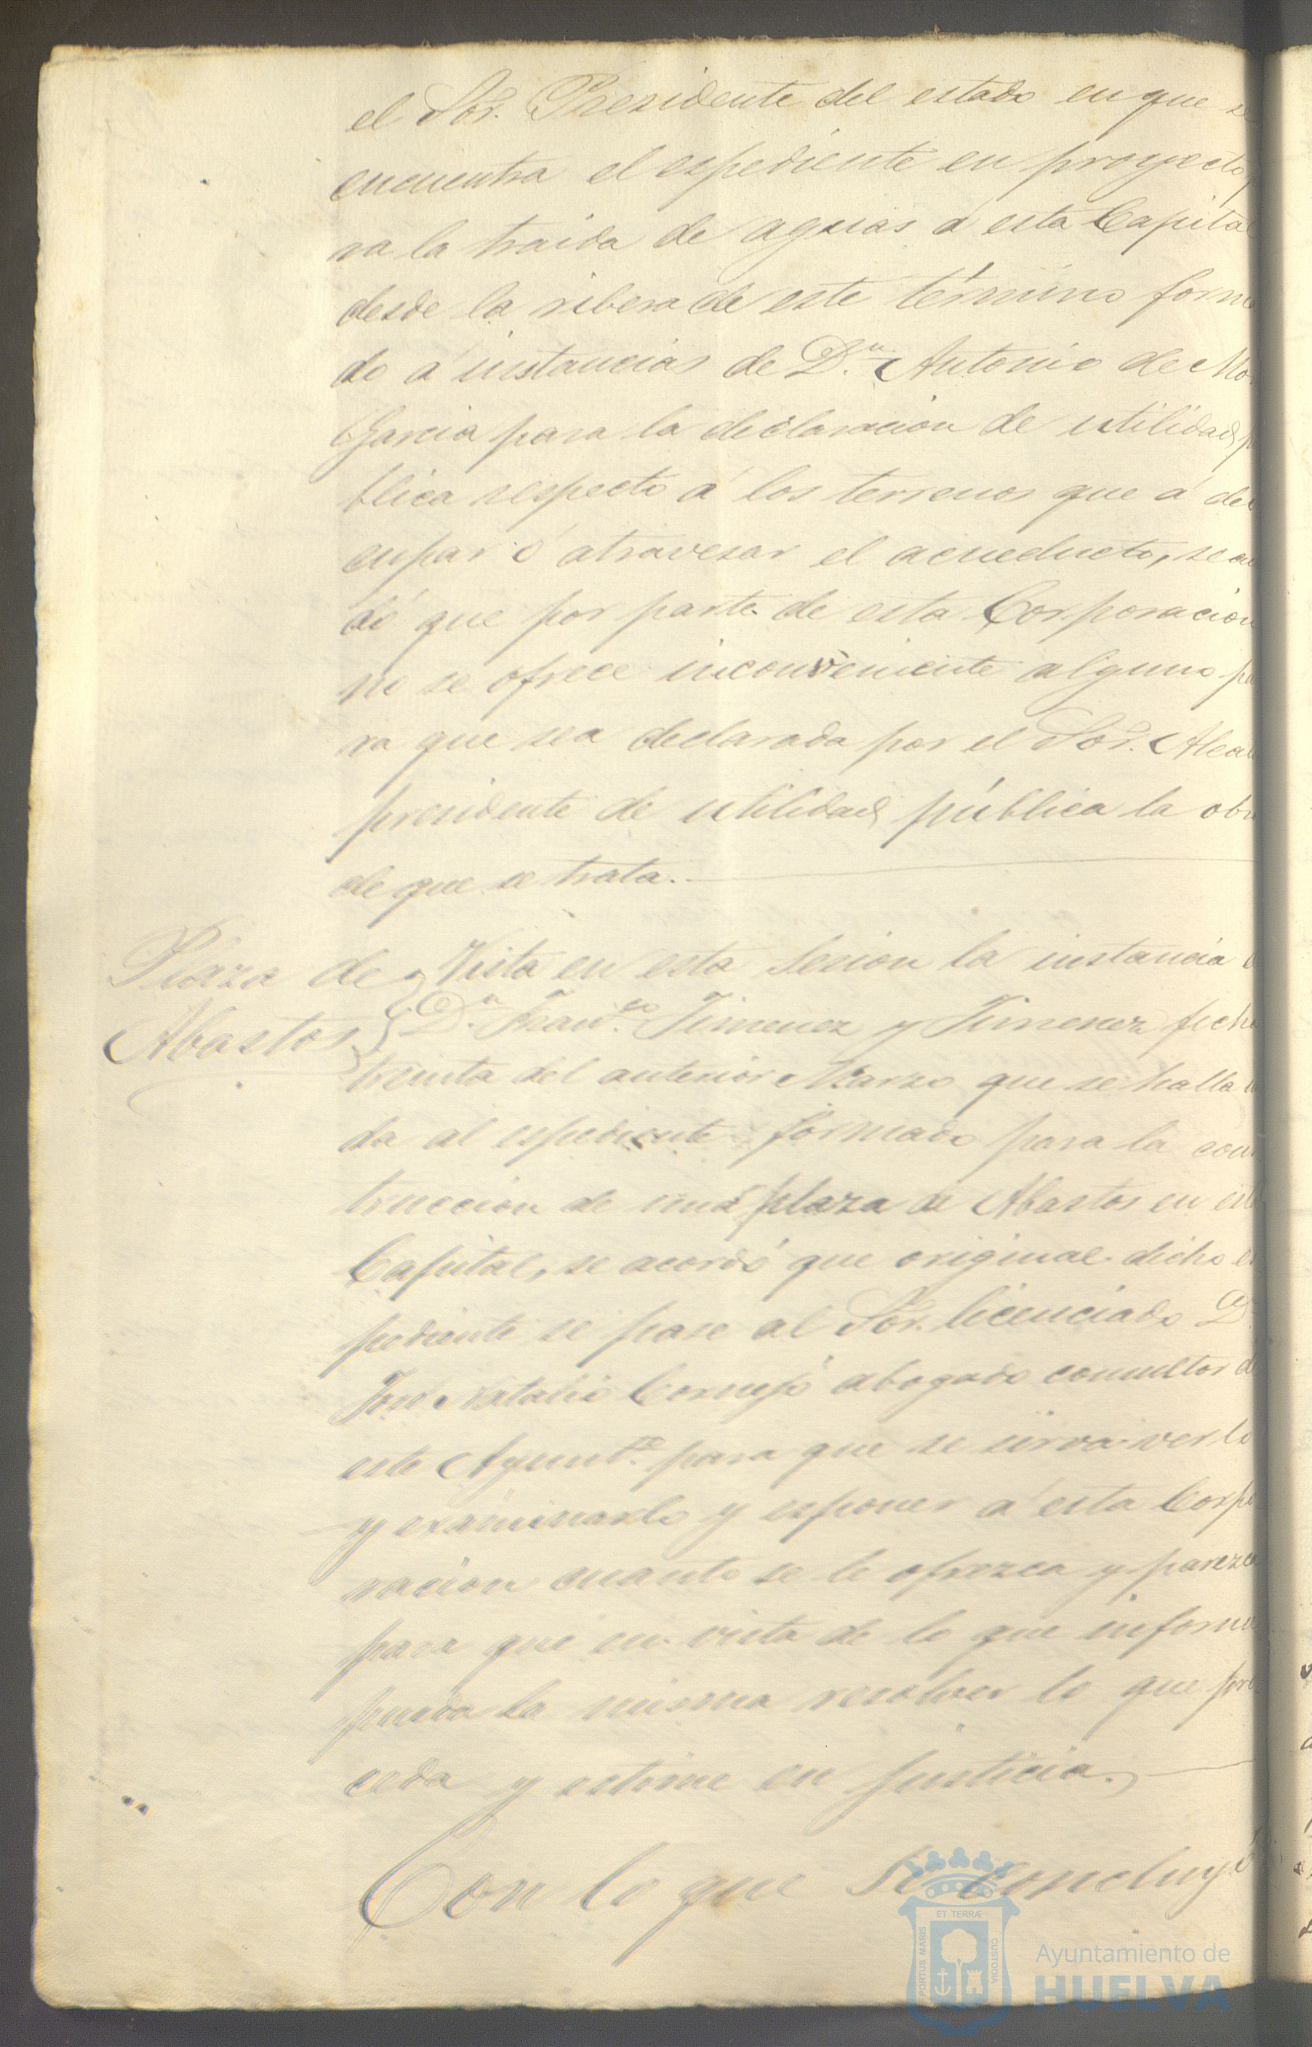 el Sor. Presidente del estado en que se
encuentra el espediente en proyecto p
ra la traida de aguas a esta Capital
desde la ribera de este término forma
do á instancias de Dn. Antonio de Mo
Garcia para la declaracion de utilidad p
blica respecto á los terrenos que á de
cupar ó atravesar el acueducto, se a
dó que por parte de esta Corporacion
no se ofrece inconveniente alguno pa
ra que sea declarada por el Sor. Alcal
presidente de utilidad pública la obra
de que se trata.
Plaza de
Abastos
Vista en esta Sesion la instancia
Dn. Franco. Jimenez y Jimenez fecha
treinta del anterior Marzo que se halla
da al espediente formado para la cons
truccion de una plaza de Abastos en esta
Capital, se acordó que original dicho es
pediente se pase al Sor. licenciado D.
José Natalio Cornejo abogado consultor d
este Ayuntto. para que se sirva verlo
y examinarlo y esponer á esta Corpo
racion cuanto se le ofrezca y parezca
para que en vista de lo que informe
pueda la misma resolver lo que pro
ceda y estime en justicia.
Con lo que se concluyó
PORTUS MARIS ET TERRÆ CUSTODIA
Ayuntamiento de
HUELVA